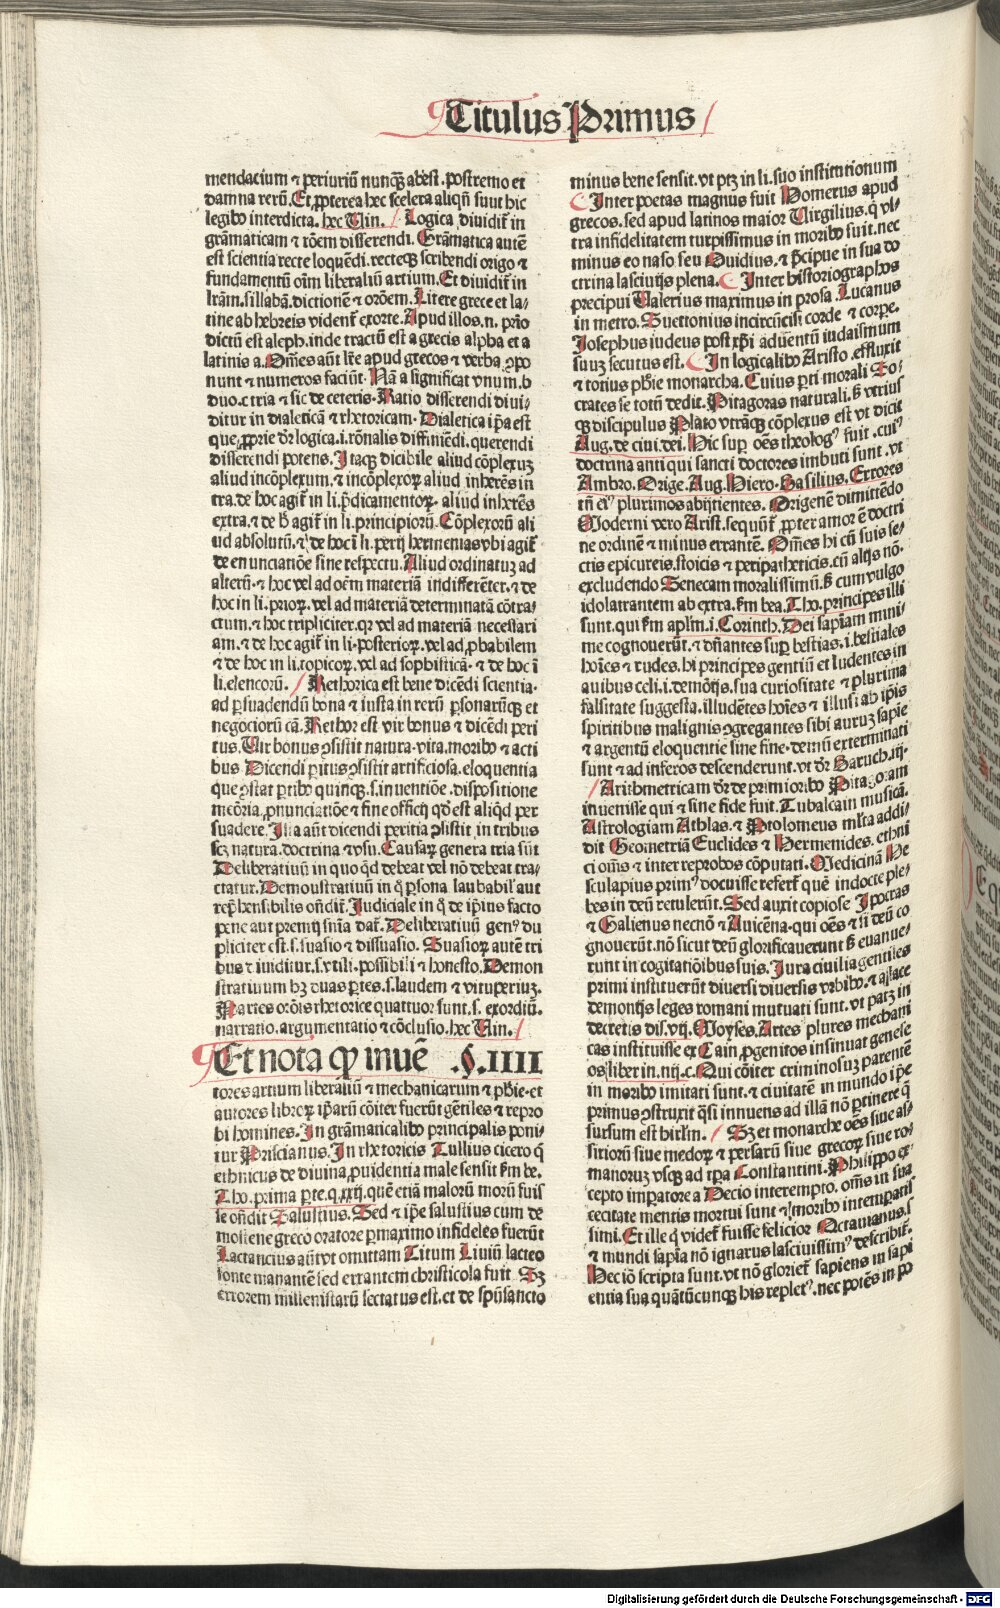 Titulus Primus
mendacium ⁊ periuriū nunqꝫ abest. postremo et
damna rerū. Et ꝓpterea hec scelera aliqñ suut hic
legibꝰ interdicta. hec Uin. Logica diuidit̄ in
grāmaticam ⁊ rōem disserendi. Grāmatica autē
est scientia recte loquēdi. recteqꝫ scribendi origo ⁊
fundamentū oīm liberaliū artium. Et diuidit̄ in
lrām. sillabā. dictionē ⁊ orōem. Litere grece et la-
tine ab hebreis vident̄ exorte. Apud illos .n. prīo
dictū est aleph. inde tractū est a grecis alpha et a
latinis a. Om̄es aūt lr̄e apud grecos ⁊ verba ꝯpo
nunt ⁊ numeros faciūt. Nā a significat vnum. b
duo. c tria ⁊ sic de ceteris. Ratio disserendi diui-
ditur in dialeticā ⁊ rhetoricam. Dialetica ip̄a est
que ꝓprie dr̄ logica. i. rōnalis diffiniēdi. querendi
disserendi potens. Itaqꝫ dicibile aliud cōplexuꝫ
aliud incōplexum. ⁊ incōplexoꝝ aliud inherēs in
tra. de hoc agit̄ in li. p̄dicamentoꝝ. aliud inherēs
extra. ⁊ de h̄ agit̄ in li. principiorū. Cōplexorū ali
ud absolutū. ⁊ de hoc ī li. perij hermenias vbi agit̄
de enunciatiōe sine respectu. Aliud ordinatuꝫ ad
alterū. ⁊ hoc vel ad oēm materiā indifferēter. ⁊ de
hoc in li. prioꝝ. vel ad materiā determinatā cōtra-
ctum. ⁊ hoc tripliciter. qꝛ vel ad materiā necessari
am. ⁊ de hoc agit̄ in li. posterioꝝ. vel ad ꝓbabilem
⁊ de hoc in li. topicoꝝ. vel ad sophisticā. ⁊ de hoc ī
li. elencorū. Rethorica est bene dicēdi scientia.
ad ꝑsuadendū bona ⁊ iusta in rerū ꝑsonarūqꝫ et
negociorū cā. Rethor est vir bonus ⁊ dicēdi peri
tus. Uir bonus ꝯsistit natura. vita. moribꝰ ⁊ acti
bus Dicendi ꝑitus ꝯsistit artificiosa. eloquentia
que ꝯstat ꝑtibꝰ quinqꝫ. s. inuentiōe. dispositione
meōria. ꝓnunciatiōe ⁊ fine officij qd̄ est aliqd̄ per
suadere. Illa aūt dicendi peritia ꝯsistit in tribus
scꝫ natura. doctrina ⁊ vsu. Causaꝝ genera tria sūt
Deliberatiuū in quo qd̄ debeat vel nō debeat tra-
ctatur. Demonstratiuū in q̄ ꝑsona laudabil̓ aut
rep̄hensibilis oñdit̄. Judiciale in q̄ de ip̄ius facto
pene aut premij snīa dat̄. Deliberatiuū genꝰ du
pliciter est. s. suasio ⁊ dissuasio. Suasioꝝ autē tri
bus diuiditur. s. vtili. possibili ⁊ honesto. Demon
stratiuum hꝫ duas ꝑtes. s. laudem ⁊ vituperiuꝫ.
Partes orōis rhetorice quattuor sunt. s. exordiū.
narratio. argumentatio ⁊ cōclusio. hec Uin.
Et nota qꝙ inuē .§. IIII
tores artium liberaliū ⁊ mechanicarum ⁊ phīe. et
autores libroꝝ ip̄arū cōiter fuerūt gētiles ⁊ repro
bi homines. In grāmaticalibꝰ principalis poni-
tur Priscianus. In rhetoricis Tullius cicero q̄
ethnicus de diuina ꝓuidentia male sensit s̄m be.
Tho. prima ꝑte. q. xxij. quē etiā malorū morū fuis
se oñdit Salustius. Sed ⁊ ip̄e salustius cum de
mostene greco oratore ꝑmaximo infideles fuerūt
Lactancius aūt vt omittam Titum Liuiū lacteo
fonte manantē sed errantem christicola fuit Sꝫ
errorem millenistarū sectatus est. et de spū sancto
minus bene sensit. vt ptꝫ in li. suo institutionum
Inter poetas magnus fuit Homerus apud
grecos. sed apud latinos maior Uirgilius. q̄ vl-
tra infidelitatem turpissimus in moribꝰ fuit. nec
minus eo naso seu Ouidius. ⁊ p̄cipue in sua do
ctrina lasciuijs plena. Inter historiographos
precipui Ualerius maximus in prosa. Lucanus
in metro. Suettonius incircūcisi corde ⁊ corpe.
Josephus iudeus post xp̄i aduentū iudaismum
suuꝫ secutus est. In logicalibꝰ Aristo. effluxit
⁊ totius phīe monarcha. Cuius ꝑti morali So-
crates se totū dedit. Pitagoras naturali. s̄ vtrius
qꝫ discipulus Plato vtrāqꝫ cōplexus est vt dicit
Aug. de ciui. dei. Hic suꝑ oēs theologꝰ fuit. cuiꝰ
doctrina antiqui sancti doctores imbuti sunt. vt
Ambro. Orige. Aug. Hiero. Basilius. Errores
tn̄ eiꝰ plurimos abijcientes. Origenē dimittēdo
Moderni vero Arist. sequūt̄ ꝓpter amorē doctri
ne ordinē ⁊ minus errantē. Om̄es hi cū suis se-
ctis epicureis. stoicis ⁊ peripatheticis. cū alijs nō.
excludendo Senecam moralissimū. s̄ cum vulgo
idolatrantem ab extra. s̄m bea. Tho. principes illi
sunt. qui s̄m apl̄m. i. Corinth. Dei sapiam mini-
me cognouerūt. ⁊ dn̄antes suꝑ bestias. i. bestiales
hoīes ⁊ rudes. hi principes gentiū et ludentes in
auibus celi. i. demōijs. sua curiositate ⁊ plurima
falsitate suggesta. illudētes hoīes ⁊ illusi ab ip̄is
spiritibus malignis ꝯgregantes sibi auruꝫ sapīe
⁊ argentū eloquentie sine fine. demū exterminati
sunt ⁊ ad inferos descenderunt. vt dr̄ Baruch. iij.
Arithmetricam dr̄ de primioribꝰ Pitagoram
inuenisse qui ⁊ sine fide fuit. Tubalcain musicā.
Astrologiam Athlas. ⁊ Ptolomeus ml̄ta addi-
dit Geometriā Euclides ⁊ Hermenides. ethni
ci om̄s ⁊ inter reprobos cōputati. Medicinā He
sculapius primꝰ docuisse refert̄ quē indocte ple-
bes in deū retulerūt. Sed auxit copiose Ipocras
⁊ Galienus necnō ⁊ Auicēna. qui oēs ⁊ si deū co
gnouerūt. nō sicut deū glorificauerunt s̄ euanue-
runt in cogitatiōibus suis. Jura ciuilia gentiles
primi instituerūt diuersi diuersis vrbibꝰ. ⁊ a face
demonijs leges romani mutuati sunt. vt patꝫ in
decretis dis. vij. Moyses. Artes plures mechani
cas instituisse ex Cain ꝓgenitos insinuat genese
os liber in. iiij. c. Qui cōiter criminosuꝫ parentē
in moribꝰ imitati sunt. ⁊ ciuitatē in mundo ip̄e
primus ꝯstruxit q̄si innuens ad illā nō ꝑtinere q̄
sursum est hirl̄m. Sꝫ et monarche oēs siue as-
siriorū siue medoꝝ ⁊ persarū siue grecoꝝ siue ro-
manoruꝫ vsqꝫ ad tp̄a Constantini. Philippo ex-
cepto imꝑatore a Decio interempto. om̄s in sua
cecitate mentis mortui sunt ⁊ moribꝰ intemꝑatis
simi. Et ille q̄ videt̄ fuisse felicior Octauianus. s
⁊ mundi sapīa nō ignarus lasciuissimꝰ describit̄.
Hec iō scripta sunt. vt nō gloriet̄ sapiens in sapi
entia sua quātūcunqꝫ his repletꝰ. nec potēs in po
Digitalisierung gefördert durch die Deutsche Forschungsgemeinschaft - DFG